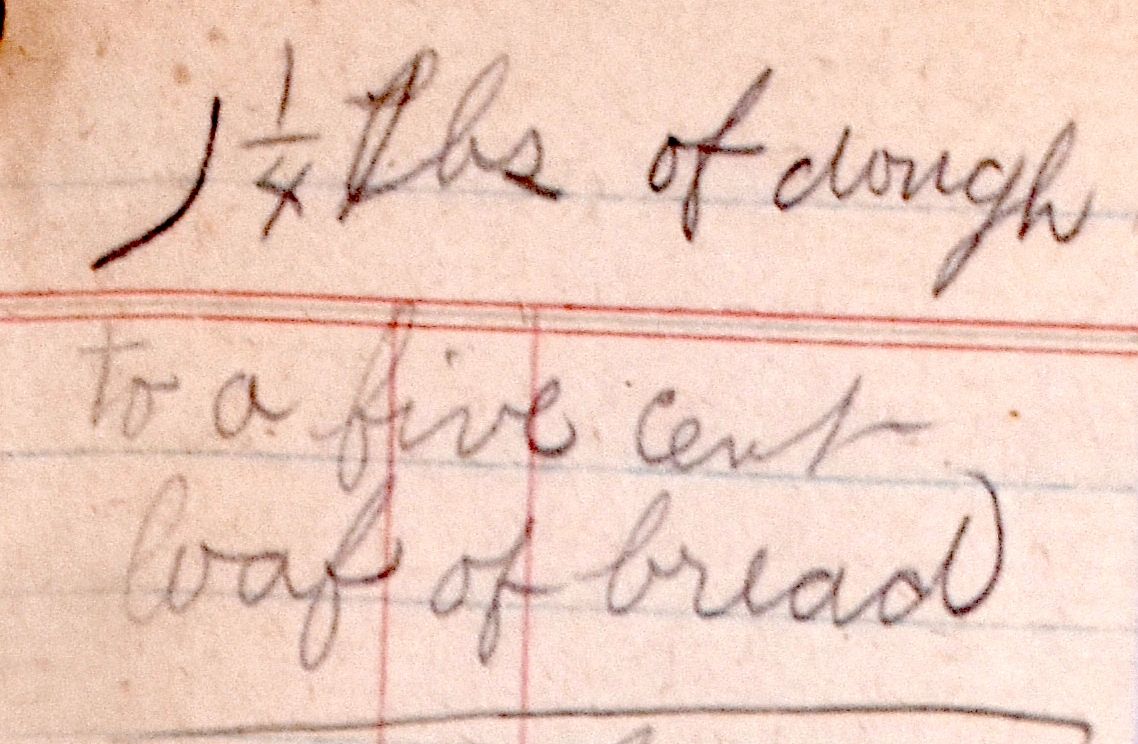 1 1/4 lbs of dough
to a five cent
loaf of bread